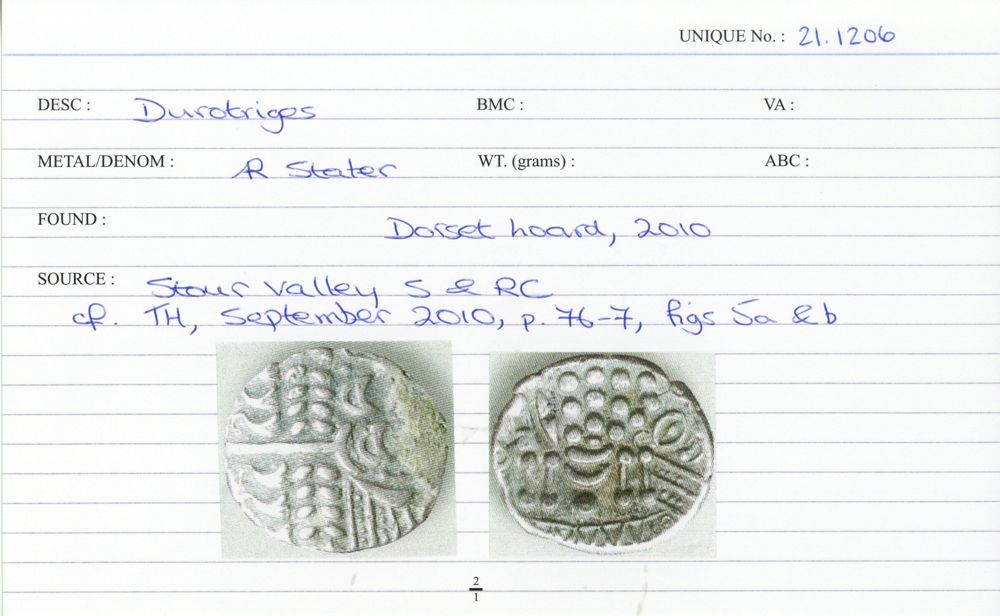 UNIQUE No. : 21.1206
DESC : Durotriges BMC : VA :
METAL/DENOM : AR Stater WT. (grams) : ABC :
FOUND : Dorset hoard, 2010
SOURCE : Stour Valley S & RC
cf. TH, September 2010, p. 76-7, figs 5a & b
2
1